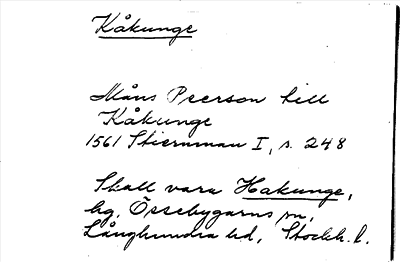 Kåkunge
Måns Peerson till
Kåkunge
1561 Stiernman I, s. 248
Skall vara Hakunge,
hg, Össebygarns sn,
Långhundra hd, Stockh. l.